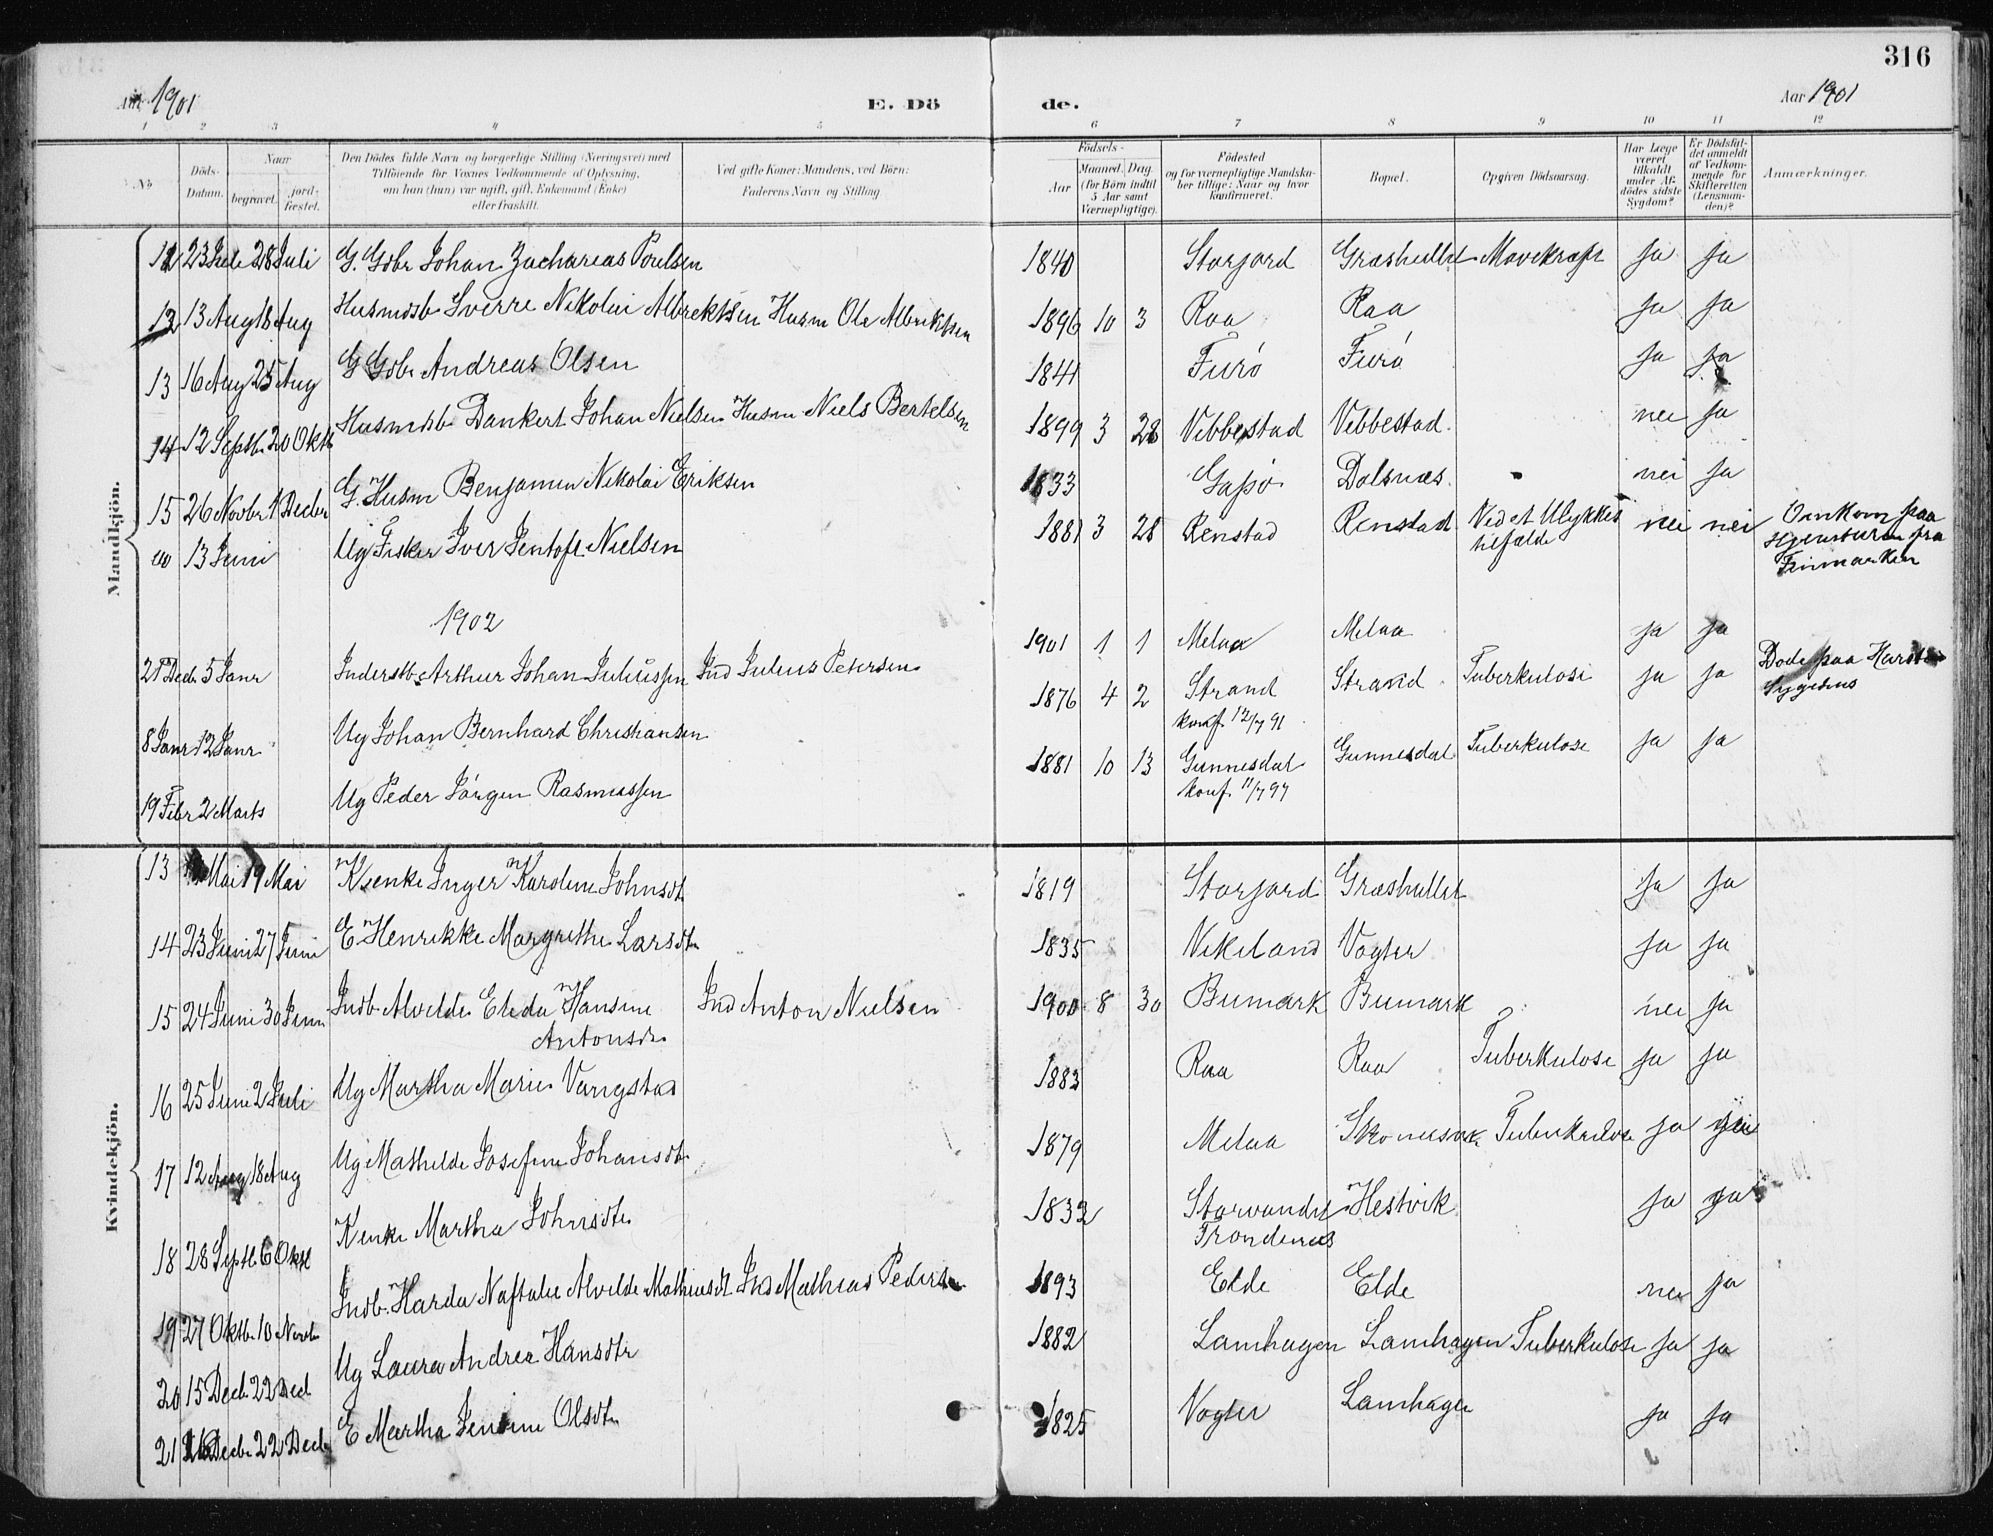 316
Aar 1901 E. Dö de. Aar 1901
1 2 3 4 5 6 7 8 9 10 11 12
No Döds-Datum. Naar begravet. jord-fæstet. Den Dödes fulde Navn og borgerlige Stilling (Næringsvei) med Tilföiende for Voxnes Vedkommende af Oplysning, om han (hun) var ugift, gift, Enkemand (Enke) eller fraskilt. Ved gifte Koner: Mandens, ved Börn: Faderens Navn og Stilling Födsels- Aar Maaned. Dag. (for Börn indtil 5 Aar samt Værnepligtige). Födested og for værnepligtige Mandskaber tillige: Naar og hvor konfirmeret. Bopæl. Opgiven Dödsaarsag. Har Læge været tilkaldt under Afdödes sidste Sygdom? Er Dödsfaldet anmeldt af Vedkommende for Skifteretten (Lensmanden)? Anmærkninger.
Mandkjön.
12 23 Juli 28 Juli G. Gdbr Johan Zacharias Poulsen 1840 Storjord Græshullet Mavekræft ja ja
13 Aug 18 Aug Husmdsb Sverre Nikolai Albrektsen Husm Ole Albrektsen 1896 10 3 Raa Raa ja ja
13 16 Aug 25 Aug G Gdbr Andreas Olsen 1841 Furö Furö ja ja
14 12 Septb. 20 Oktb Husmdsb Dankert Johan Nielsen Husm Niels Bertelsen 1899 3 28 Vebbestad Vebbestad. nei ja
15 26 Novbr 1 Decbr G. Husm Benjamin Nikolai Eriksen 1833 Gapö Dalsnæs. nei ja
13 Juni Ug Fisker Iver Jentoft Nielsen 1881 3 28 Renstad Renstad Ved et Ulykkestilfælde nei nei Omkom paa Hjemturen fra Finmarken
1902
21 Decb 5 Janr Inderstb. Arthur Johan Juliussen Ind Julius Petersen 1901 1 1 Melaa Melaa ja ja
8 Janr 12 Janr Ug Johan Bernhard Christiansen 1876 4 2 Strand konf. 12/7 91 Strand Tuberkulose ja ja Döde paa Harstad Sygehus
19 Febr 2 Marts Ug Peder Jörgen Rasmussen 1881 10 13 Gunnesdal konf. 11/7 97 Gunnesdal Tuberkulose ja ja
Kvindekjön.
13 Mai 19 Mai Kjenke Inger Karoline Johnsdt 1819 Storjord Græshullet ja ja
14 23 Juni 27 Juni E Henrikke Margrethe Larsdtr 1835 Vikeland Vogter ja ja
15 24 Juni 30 Juni Indb. Alvilde Elida Hansine Antonsdr Ind Anton Nielsen 1900 8 30 Bumark Bumark nei ja
16 25 Juni 2 Juli Ug Martha Marie Vangstad 1883 Raa Raa Tuberkulose ja ja
17 12 Aug 18 Aug Ug Mathilde Josefine Johansdtr 1879 Melaa Tuberkulose ja
18 28 Septb. 6 Oktb Kenke Martha Johnsdtr 1832 Storvandet Trondenæs Hestvik ja ja
19 27 Oktb. 10 Novb Indb. Harda Naftalie Alvilde Mathiasdt Ind Mathias Peders 1893 Elde Elde nei ja
20 15 Decb 22 Decb Ug Laura Andrea Hansdtr 1882 Lamhagen Lamhagen Tuberkulose ja ja
21 Decbr 22 Decb E Martha Jensine Olsdtr 1825 Vogter Lamhagen ja ja